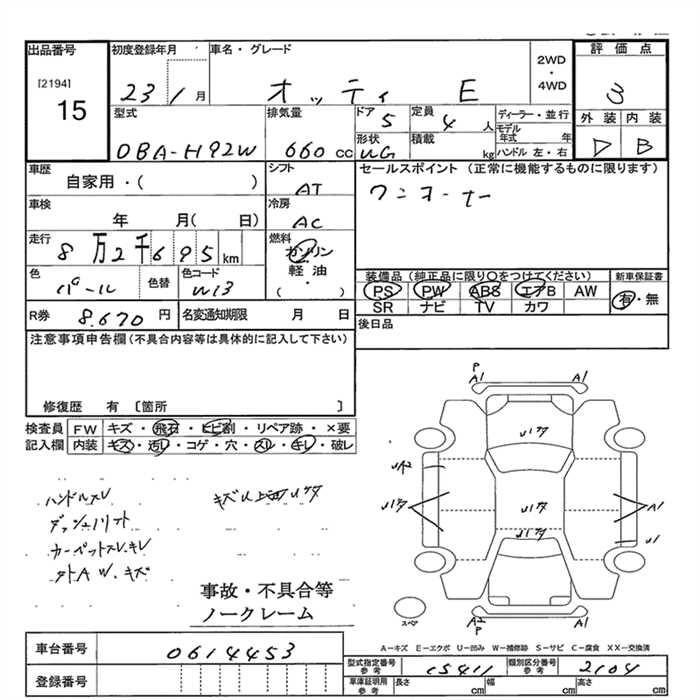 出品番号
[2194]
15
初度登録年月
23 1月
車名・グレード
オッティ E
2WD
・
4WD
評価点
3
外装 内装
D B
型式
DBA-H92W
排気量
660 cc
ドア
5
定員
4 人
形状
UG
積載
kg
ディーラー・並行
モデル年式 年
ハンドル 左・右
車歴
自家用・( )
シフト
AT
セールスポイント (正常に機能するものに限ります)
ワンオーナー
車検
年 月( 日)
冷房
AC
走行
8万2千695km
燃料
ガソリン
軽油
・
( )
色
パール
色替
色コード
W13
装備品(純正品に限り○をつけてください)
PS PW ABS エアB AW
SR ナビ TV カワ
新車保証書
有・無
R券 8.670円
名変通知期限 月 日
後日品
注意事項申告欄(不具合内容等は具体的に記入して下さい)
修復歴 有 〔箇所 〕
検査員記入欄
FW キズ・飛石・ヒビ割・リペア跡・×要
内装 キズ・汚レ・コゲ・穴・スレ・キレ・破レ
ハンドルスレ
カーペットスレ・キレ
事故・不具合等
ノークレーム
P
A1 A1
A1
U1
A2
P
A1
スペア
A-キズ E-エクボ U-凹み W-補修跡 S-サビ C-腐食 XX-交換済
車台番号 0614453
登録番号
型式指定番号 参考 15411
類別区分番号 参考 2104
車庫証明用 参考
長さ cm 幅 cm 高さ cm